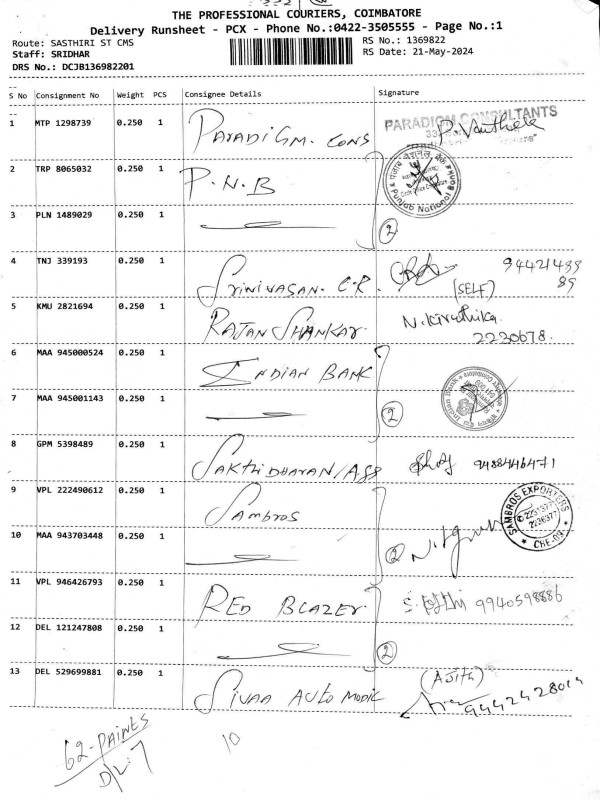 THE PROFESSIONAL COURIERS, COIMBATORE
Delivery Runsheet - PCX - Phone No.:0422-3505555 - Page No.:1
Route: SASTHIRI ST CMS
Staff: SRIDHAR
DRS No.: DCJB136982201
RS No.: 1369822
RS Date: 21-May-2024
S No Consignment No Weight PCS Consignee Details Signature
1 MTP 1298739 0.250 1 PARADIGM. CONS PARADIGM CONSULTANTS
2 TRP 8065032 0.250 1 P.N.B Punjab National Bank
3 PLN 1489029 0.250 1 2
4 TNJ 339193 0.250 1 SRINIVASAN. C.R. (SELF) 94421499
89
5 KMU 2821694 0.250 1 RAJAN SHANKAR N. Kiruthika
2230678.
6 MAA 945000524 0.250 1 INDIAN BANK
7 MAA 945001143 0.250 1 2
8 GPM 5398489 0.250 1 SAKTHIDHARAN/ASS 9488446471
9 VPL 222490612 0.250 1 SAMBROS SAMBROS EXPORTERS CBE-09.
10 MAA 943703448 0.250 1 2
11 VPL 946426793 0.250 1 RED BLAZER 9940598886
12 DEL 121247808 0.250 1 2
13 DEL 529699881 0.250 1 SIVAA AUTO MODIC (AJITH)
62-PAINTS
D/L:7
10